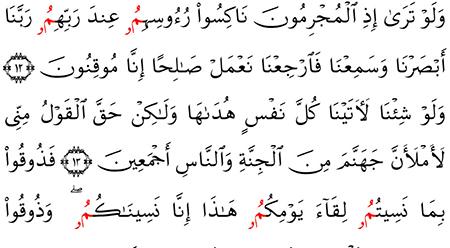 وَلَوْ تَرَىٰٓ إِذِ ٱلْمُجْرِمُونَ نَاكِسُواْ رُءُوسِهِمُۥ عِندَ رَبِّهِمُۥ رَبَّنَا
أَبْصَرْنَا وَسَمِعْنَا فَٱرْجِعْنَا نَعْمَلْ صَـٰلِحًا إِنَّا مُوقِنُونَ ١٢
وَلَوْ شِئْنَا لَأٓتَيْنَا كُلَّ نَفْسٍ هُدَىٰهَا وَلَـٰكِنْ حَقَّ ٱلْقَوْلُ مِنِّى
لَأَمْلَأَنَّ جَهَنَّمَ مِنَ ٱلْجِنَّةِ وَٱلنَّاسِ أَجْمَعِينَ ١٣ فَذُوقُواْ
بِمَا نَسِيتُمُۥ لِقَآءَ يَوْمِكُمُۥ هَـٰذَا إِنَّا نَسِينَـٰكُمُۥۖ وَذُوقُواْ